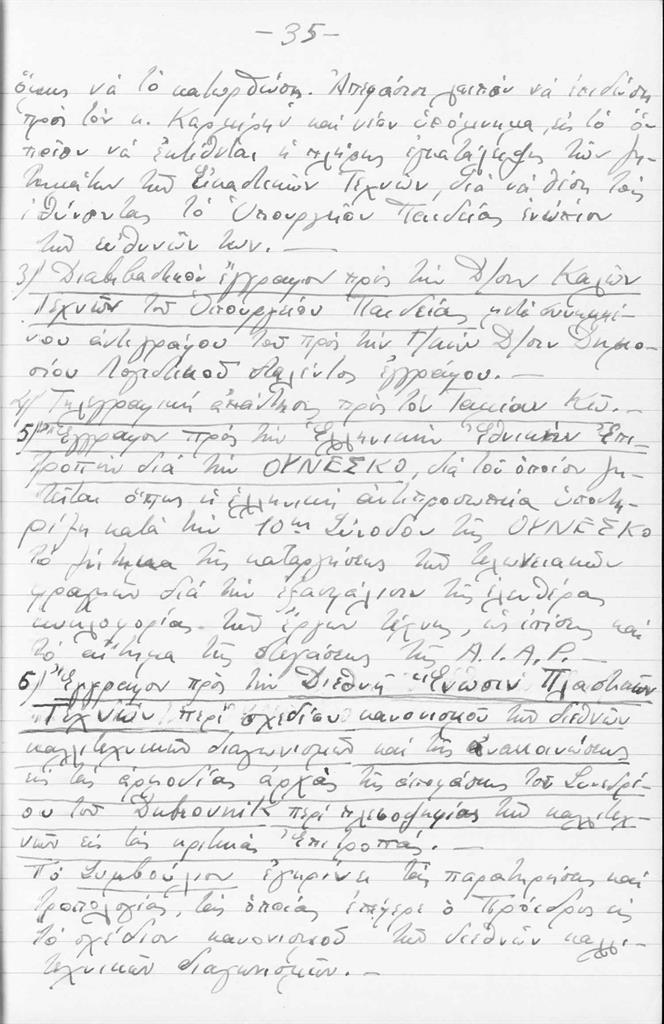 -35-
ὅπως νά τό κατορθώσῃ. Ἀπεφάσισε λοιπόν νά ἐπιδώσῃ
πρός τόν κ. καί νέον ὑπόμνημα, εἰς τό ὁ-
ποῖον νά ἐκτίθεται ἡ πλήρης ἐγκατάλειψις τῶν ζη-
τημάτων τῶν Εἰκαστικῶν Τεχνῶν, διά νά θέσῃ τούς
ἰθύνοντας τό Ὑπουργεῖον Παιδείας ἐνώπιον
τῶν εὐθυνῶν των. —
3/ Διαβιβαστικόν ἔγγραφον πρός τήν Δ/σιν Καλῶν
Τεχνῶν τοῦ Ὑπουργείου Παιδείας μετά συνημμέ-
νου ἀντιγράφου τοῦ πρός τήν Γ/κήν Δ/σιν Δημο-
σίου Λογιστικοῦ σταλέντος ἐγγράφου. —
4/ Τηλεγραφική ἀπάντησις πρός τόν Ταμίαν Κῶ. —
5/ Ἔγγραφον πρός τήν Ἑλληνικήν Ἐθνικήν Ἐπι-
τροπήν διά τήν ΟΥΝΕΣΚΟ, διά τοῦ ὁποίου ζη-
τεῖται ὅπως ἡ ἑλληνική ἀντιπροσωπεία ὑποστη-
ρίξῃ κατά τήν 10ην Σύνοδον τῆς ΟΥΝΕΣΚΟ
τό ζήτημα τῆς καταργήσεως τῶν τελωνειακῶν
φραγμῶν διά τήν ἐξασφάλισιν τῆς ἐλευθέρας
κυκλοφορίας τῶν ἔργων τέχνης, ὡς ἐπίσης καί
τό αἴτημα τῆς στεγάσεως τῆς A.I.A.P. —
6/ Ἔγγραφον πρός τήν Διεθνῆ Ἕνωσιν Πλαστικῶν
Τεχνῶν περί σχεδίου κανονισμοῦ τῶν διεθνῶν
καλλιτεχνικῶν διαγωνισμῶν καί τῆς ἀνακοινώσεως
εἰς τάς ἁρμοδίας ἀρχάς τῆς ἀποφάσεως τοῦ Συνεδρί-
ου τοῦ Dubrovnik περί πλειοψηφίας τῶν καλλιτε-
χνῶν εἰς τάς κριτικάς Ἐπιτροπάς. —
Τό Συμβούλιον ἐγκρίνει τάς παρατηρήσεις καί
τροπολογίας, τάς ὁποίας ἐπέφερε ὁ Πρόεδρος εἰς
τό σχέδιον κανονισμοῦ τῶν διεθνῶν καλλι-
τεχνικῶν διαγωνισμῶν. —